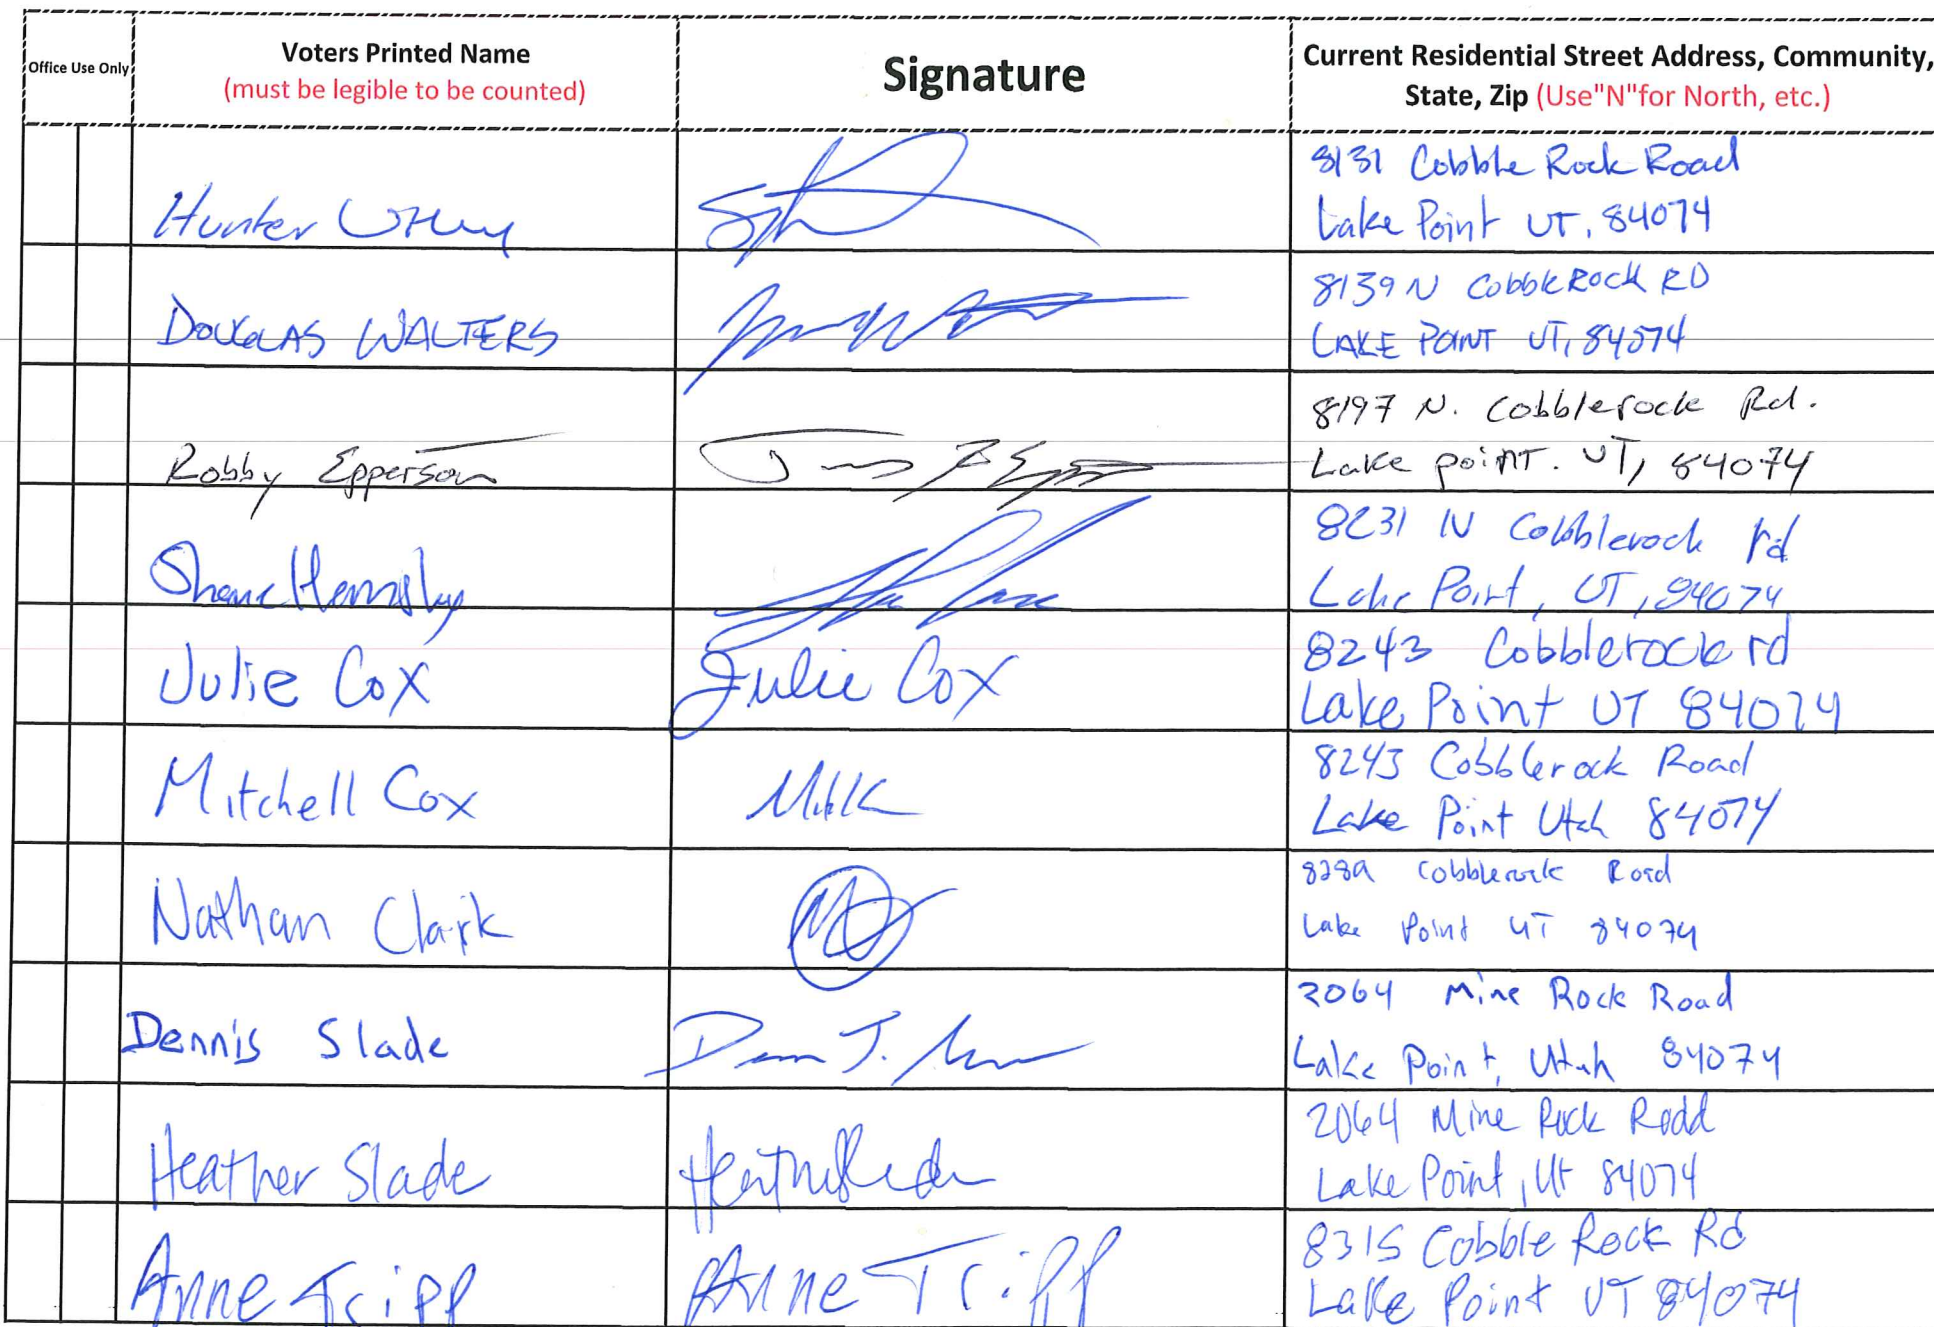 Office Use Only
Voters Printed Name
(must be legible to be counted)
Signature
Current Residential Street Address, Community,
State, Zip (Use"N"for North, etc.)
Hunter
8131 Cobble Rock Road
Lake Point UT, 84074
DOUGLAS WALTERS
8139 N CobbleRock RD
LAKE POINT UT, 84074
Robby Epperson
8197 N. Cobblerock Rd.
Lake poinT. UT, 84074
Shane Hemsley
8231 N Cobblerock rd
Lake Point, UT, 84074
Julie Cox
Julie Cox
8243 Cobblerock rd
Lake Point UT 84074
Mitchell Cox
8243 Cobblerock Road
Lake Point Utah 84074
Nathan Clark
8289 Cobblerock Road
Lake Point UT 84074
Dennis Slade
2064 Mine Rock Road
Lake Point, Utah 84074
Heather Slade
2064 Mine Rock Road
Lake Point, Ut 84074
Anne Tripp
Anne Tripp
8315 Cobble Rock Rd
Lake Point UT 84074